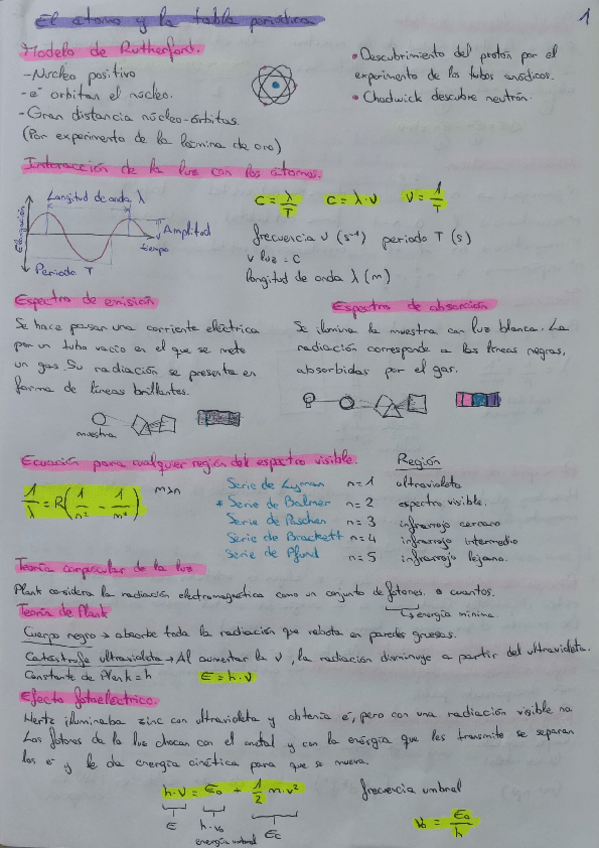 El átomo y la tabla periódica
1
Modelo de Rutherford.
-Núcleo positivo
-e⁻ orbitan el núcleo.
-Gran distancia núcleo-órbitas.
(Por experimento de la lámina de oro)
• Descubrimiento del protón por el
experimento de los tubos anódicos.
• Chadwick descubre neutrón.
Interacción de la luz con los átomos.
Longitud de onda λ
Elongación
Amplitud
tiempo
Periodo T
C = λ/T C = λ·ν ν = 1/T
frecuencia ν (s⁻¹) periodo T (s)
v luz = C
longitud de onda λ (m)
Espectro de emisión
Se hace pasar una corriente eléctrica
por un tubo vacío en el que se mete
un gas. Su radiación se presenta en
forma de líneas brillantes.
muestra
Espectro de absorción
Se ilumina la muestra con luz blanca. La
radiación corresponde a las líneas negras,
absorbidas por el gas.
Ecuación para cualquier región del espectro visible.
1/λ = R(1/n² - 1/m²) m>n
Región
Serie de Lyman n=1 ultravioleta
* Serie de Balmer n=2 espectro visible.
Serie de Paschen n=3 infrarrojo cercano
Serie de Brackett n=4 infrarrojo intermedio
Serie de Pfund n=5 infrarrojo lejano.
Teoría corpuscular de la luz
Plank considera la radiación electromagnética como un conjunto de fotones o cuantos.
↳ energía mínima
Teoría de Plank
Cuerpo negro → absorbe toda la radiación que rebota en paredes gruesas.
Catástrofe ultravioleta → Al aumentar la ν, la radiación disminuye a partir del ultravioleta.
Constante de Plank = h E = h·ν
Efecto fotoeléctrico.
Hertz iluminaba zinc con ultravioleta y obtenía e⁻, pero con una radiación visible no
Los fotones de la luz chocan con el metal y con la energía que les transmite se separan
los e⁻ y le da energía cinética para que se mueva.
h·ν = E₀ + 1/2 m·v²
E h·ν₀ Ec
energía umbral
frecuencia umbral
ν₀ = E₀/h